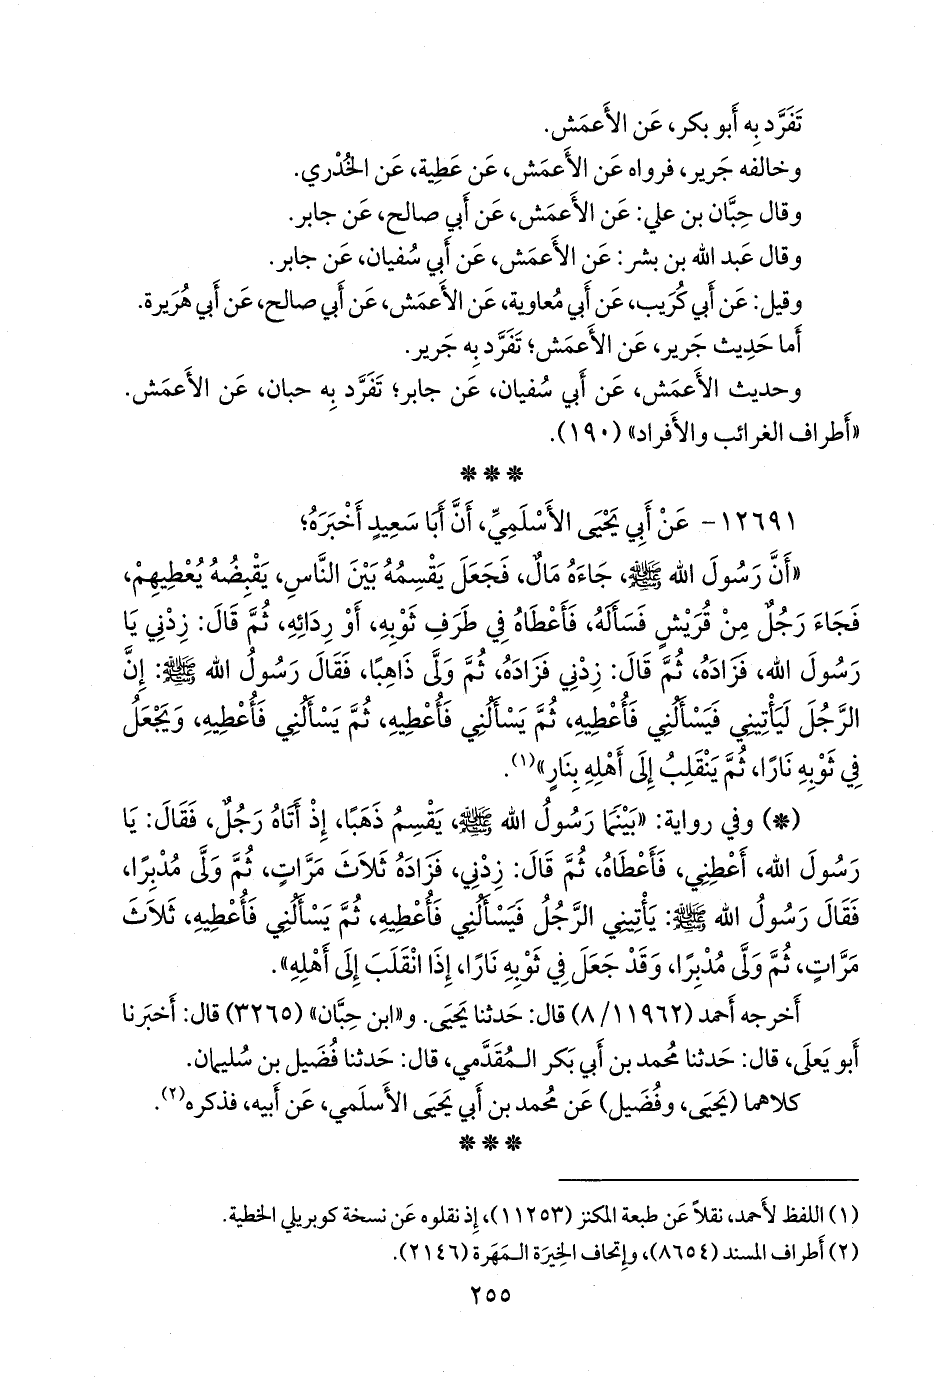 تَفَرَّد بِه أَبو بكر، عَن الأَعمَش.
وخالفه جَرير، فرواه عَن الأَعمَش، عَن عَطِية، عَن الخُدْري.
وقال حِبَّان بن علي: عَن الأَعمَش، عَن أَبي صالح، عَن جابر.
وقال عَبد الله بن بشر: عَن الأَعمَش، عَن أَبي سُفيان، عَن جابر.
وقيل: عَن أَبي كُرَيب، عَن أَبي مُعاوية، عَن الأَعمَش، عَن أَبي صالح، عَن أَبي هُرَيرة.
أَما حَدِيث جَرير، عَن الأَعمَش؛ تَفَرَّد بِه جَرير.
وحديث الأَعمَش، عَن أَبي سُفيان، عَن جابر؛ تَفَرَّد بِه حبان، عَن الأَعمَش.
«أَطراف الغرائب والأَفراد» (١٩٠).
* * *
١٢٦٩١- عَنْ أَبِي يَحْيَى الأَسْلَمِيِّ، أَنَّ أَبَا سَعِيدٍ أَخْبَرَهُ؛
«أَنَّ رَسُولَ الله ﷺ، جَاءَهُ مَالٌ، فَجَعَلَ يَقْسِمُهُ بَيْنَ النَّاسِ، يَقْبِضُهُ يُعْطِيهِمْ،
فَجَاءَ رَجُلٌ مِنْ قُرَيْشٍ فَسَأَلَهُ، فَأَعْطَاهُ فِي طَرَفِ ثَوْبِهِ، أَوْ رِدَائِهِ، ثُمَّ قَالَ: زِدْنِي يَا
رَسُولَ الله، فَزَادَهُ، ثُمَّ قَالَ: زِدْنِي فَزَادَهُ، ثُمَّ وَلَّى ذَاهِبًا، فَقَالَ رَسُولُ الله ﷺ: إِنَّ
الرَّجُلَ لَيَأْتِينِي فَيَسْأَلُنِي فَأُعْطِيهِ، ثُمَّ يَسْأَلُنِي فَأُعْطِيهِ، ثُمَّ يَسْأَلُنِي فَأُعْطِيهِ، وَيَجْعَلُ
فِي ثَوْبِهِ نَارًا، ثُمَّ يَنْقَلِبُ إِلَى أَهْلِهِ بِنَارٍ»(١).
(*) وفي رواية: «بَيْنَمَا رَسُولُ الله ﷺ، يَقْسِمُ ذَهَبًا، إِذْ أَتَاهُ رَجُلٌ، فَقَالَ: يَا
رَسُولَ الله، أَعْطِنِي، فَأَعْطَاهُ، ثُمَّ قَالَ: زِدْنِي، فَزَادَهُ ثَلَاثَ مَرَّاتٍ، ثُمَّ وَلَّى مُدْبِرًا،
فَقَالَ رَسُولُ الله ﷺ: يَأْتِينِي الرَّجُلُ فَيَسْأَلُنِي فَأُعْطِيهِ، ثُمَّ يَسْأَلُنِي فَأُعْطِيهِ، ثَلَاثَ
مَرَّاتٍ، ثُمَّ وَلَّى مُدْبِرًا، وَقَدْ جَعَلَ فِي ثَوْبِهِ نَارًا، إِذَا انْقَلَبَ إِلَى أَهْلِهِ».
أَخرجه أَحمد (١١٩٦٢/ ٨) قال: حَدثنا يَحيَى. و«ابن حِبَّان» (٣٢٦٥) قال: أَخبَرنا
أَبو يَعلَى، قال: حَدثنا مُحمد بن أَبي بَكر المُقَدَّمي، قال: حَدثنا فُضَيل بن سُليمان.
كلاهما (يَحيَى، وفُضَيل) عَن مُحمد بن أَبي يَحيَى الأَسلَمي، عَن أَبيه، فذكره(٢).
* * *
(١) اللفظ لأَحمد، نقلاً عَن طبعة المكنز (١١٢٥٣)، إِذ نقلوه عَن نسخة كوبريلي الخطية.
(٢) أَطراف المسند (٨٦٥٤)، وإِتحاف الخِيرَة المَهَرة (٢١٤٦).
٢٥٥